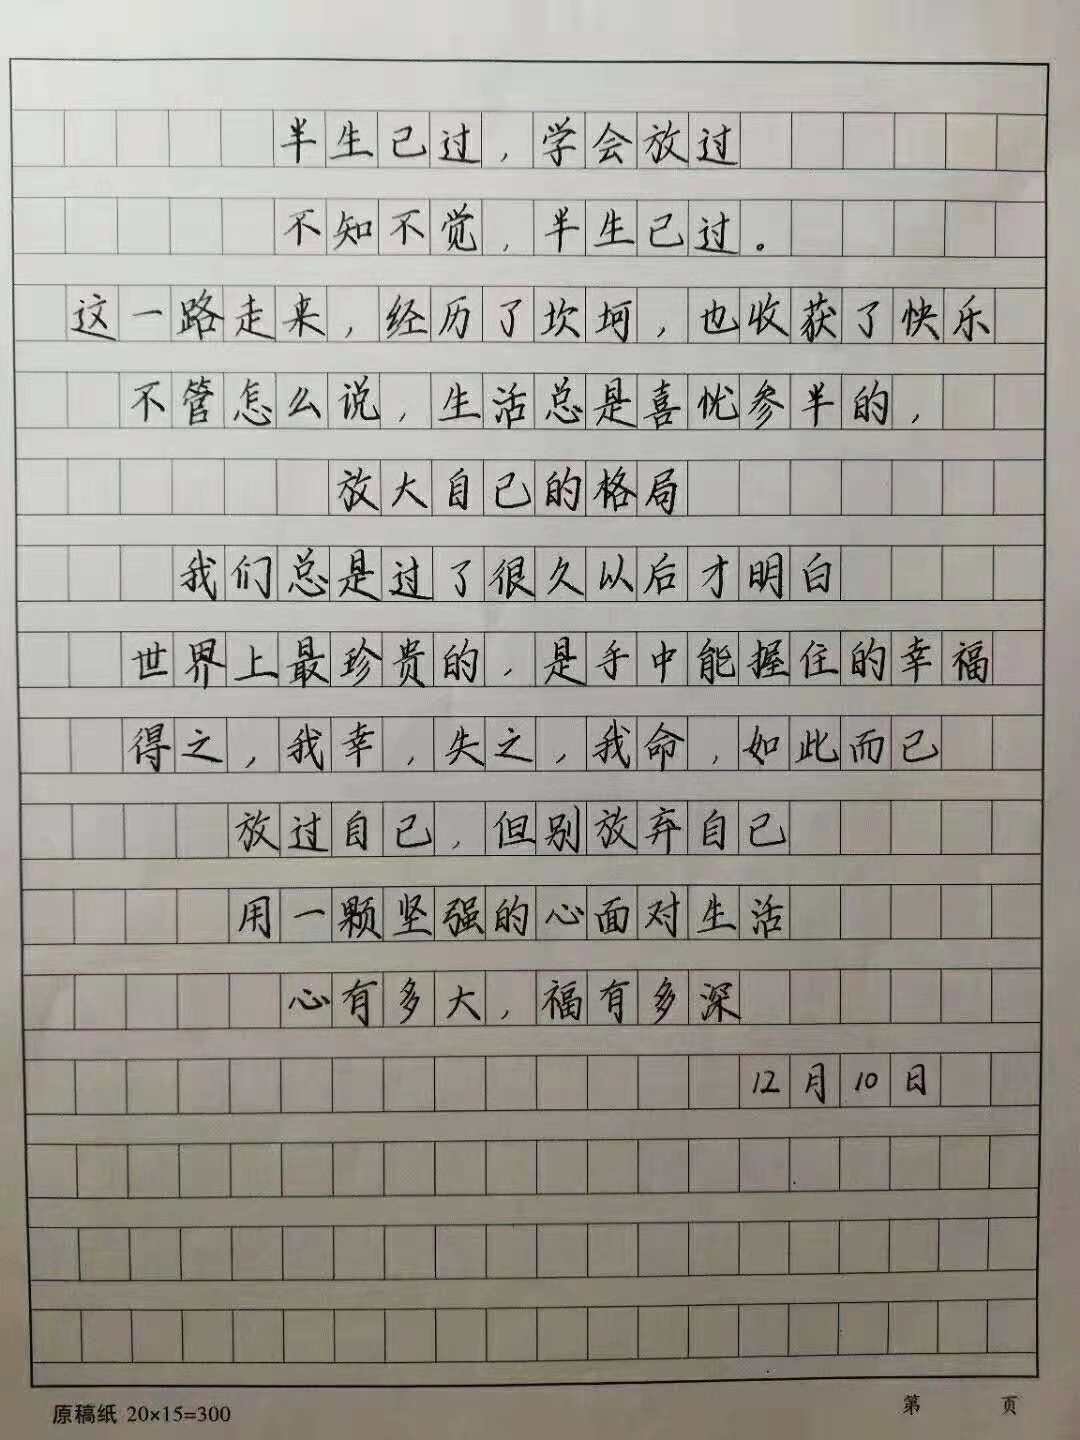 半生已过，学会放过
不知不觉，半生已过。
这一路走来，经历了坎坷，也收获了快乐
不管怎么说，生活总是喜忧参半的，
放大自己的格局
我们总是过了很久以后才明白
世界上最珍贵的，是手中能握住的幸福
得之，我幸，失之，我命，如此而已
放过自己，但别放弃自己
用一颗坚强的心面对生活
心有多大，福有多深
12月10日
原稿纸 20×15=300 第 页